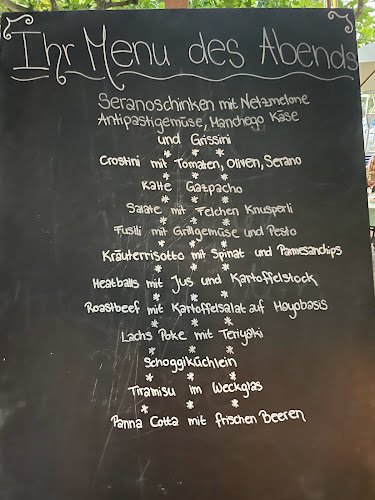 Ihr Menu des Abends
Seranoschinken mit Netzmelone
Antipastigemüse, Manchego Käse
und Grissini
* * *
Crostini mit Tomaten, Oliven, Serano
* * *
Kalte Gazpacho
* * *
Salate mit Felchen Knusperli
* * *
Fusilli mit Grillgemüse und Pesto
* * *
Kräuterrisotto mit Spinat und Parmesanchips
* * *
Meatballs mit Jus und Kartoffelstock
* * *
Roastbeef mit Kartoffelsalat auf Mayobasis
* * *
Lachs Poke mit Teriyaki
* * *
Schoggiküchlein
* * *
Tiramisu im Weckglas
* * *
Panna Cotta mit frischen Beeren